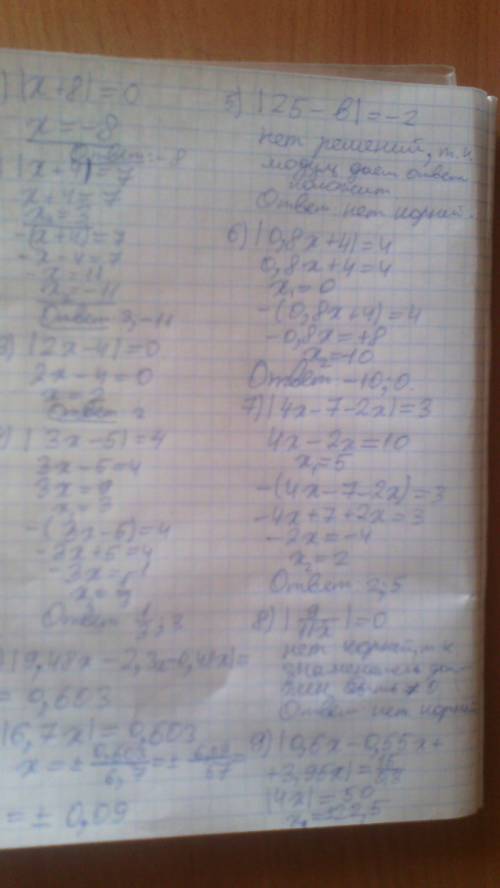 ) |x+8|=0
x=-8
Ответ: -8
|x+4|=7
x+4=7
x₁=3
-(x+4)=7
-x-4=7
-x=11
x₂=-11
Ответ 3, -11
3) |2x-4|=0
2x-4=0
x=2
Ответ 2
|3x-5|=4
3x-5=4
3x=9
x₁=3
-(3x-5)=4
-3x+5=4
x₂=
Ответ 1/3; 3
|9,48x-2,3x-0,48x|=
=0,603
|6,7x|=0,603
x=± 0,603/6,7 =±
=±0,09
5) |25-в|=-2
нет решений, т.к.
модуль дает ответ
положит
Ответ нет корней.
6) |0,8x+4|=4
0,8x+4=4
x₁=0
-(0,8x+4)=4
-0,8x=+8
x₂=-10
Ответ -10; 0.
7) |4x-7-2x|=3
4x-2x=10
x₁=5
-(4x-7-2x)=3
-4x+7+2x=3
-2x=-4
x₂=2
Ответ 2; 5
8) | |=0
нет корней, т.к
знаменатель дол
жен быть ≠0
Ответ нет корней
9) |0,6x-0,55x+
+3,95x|=
|4x|=50